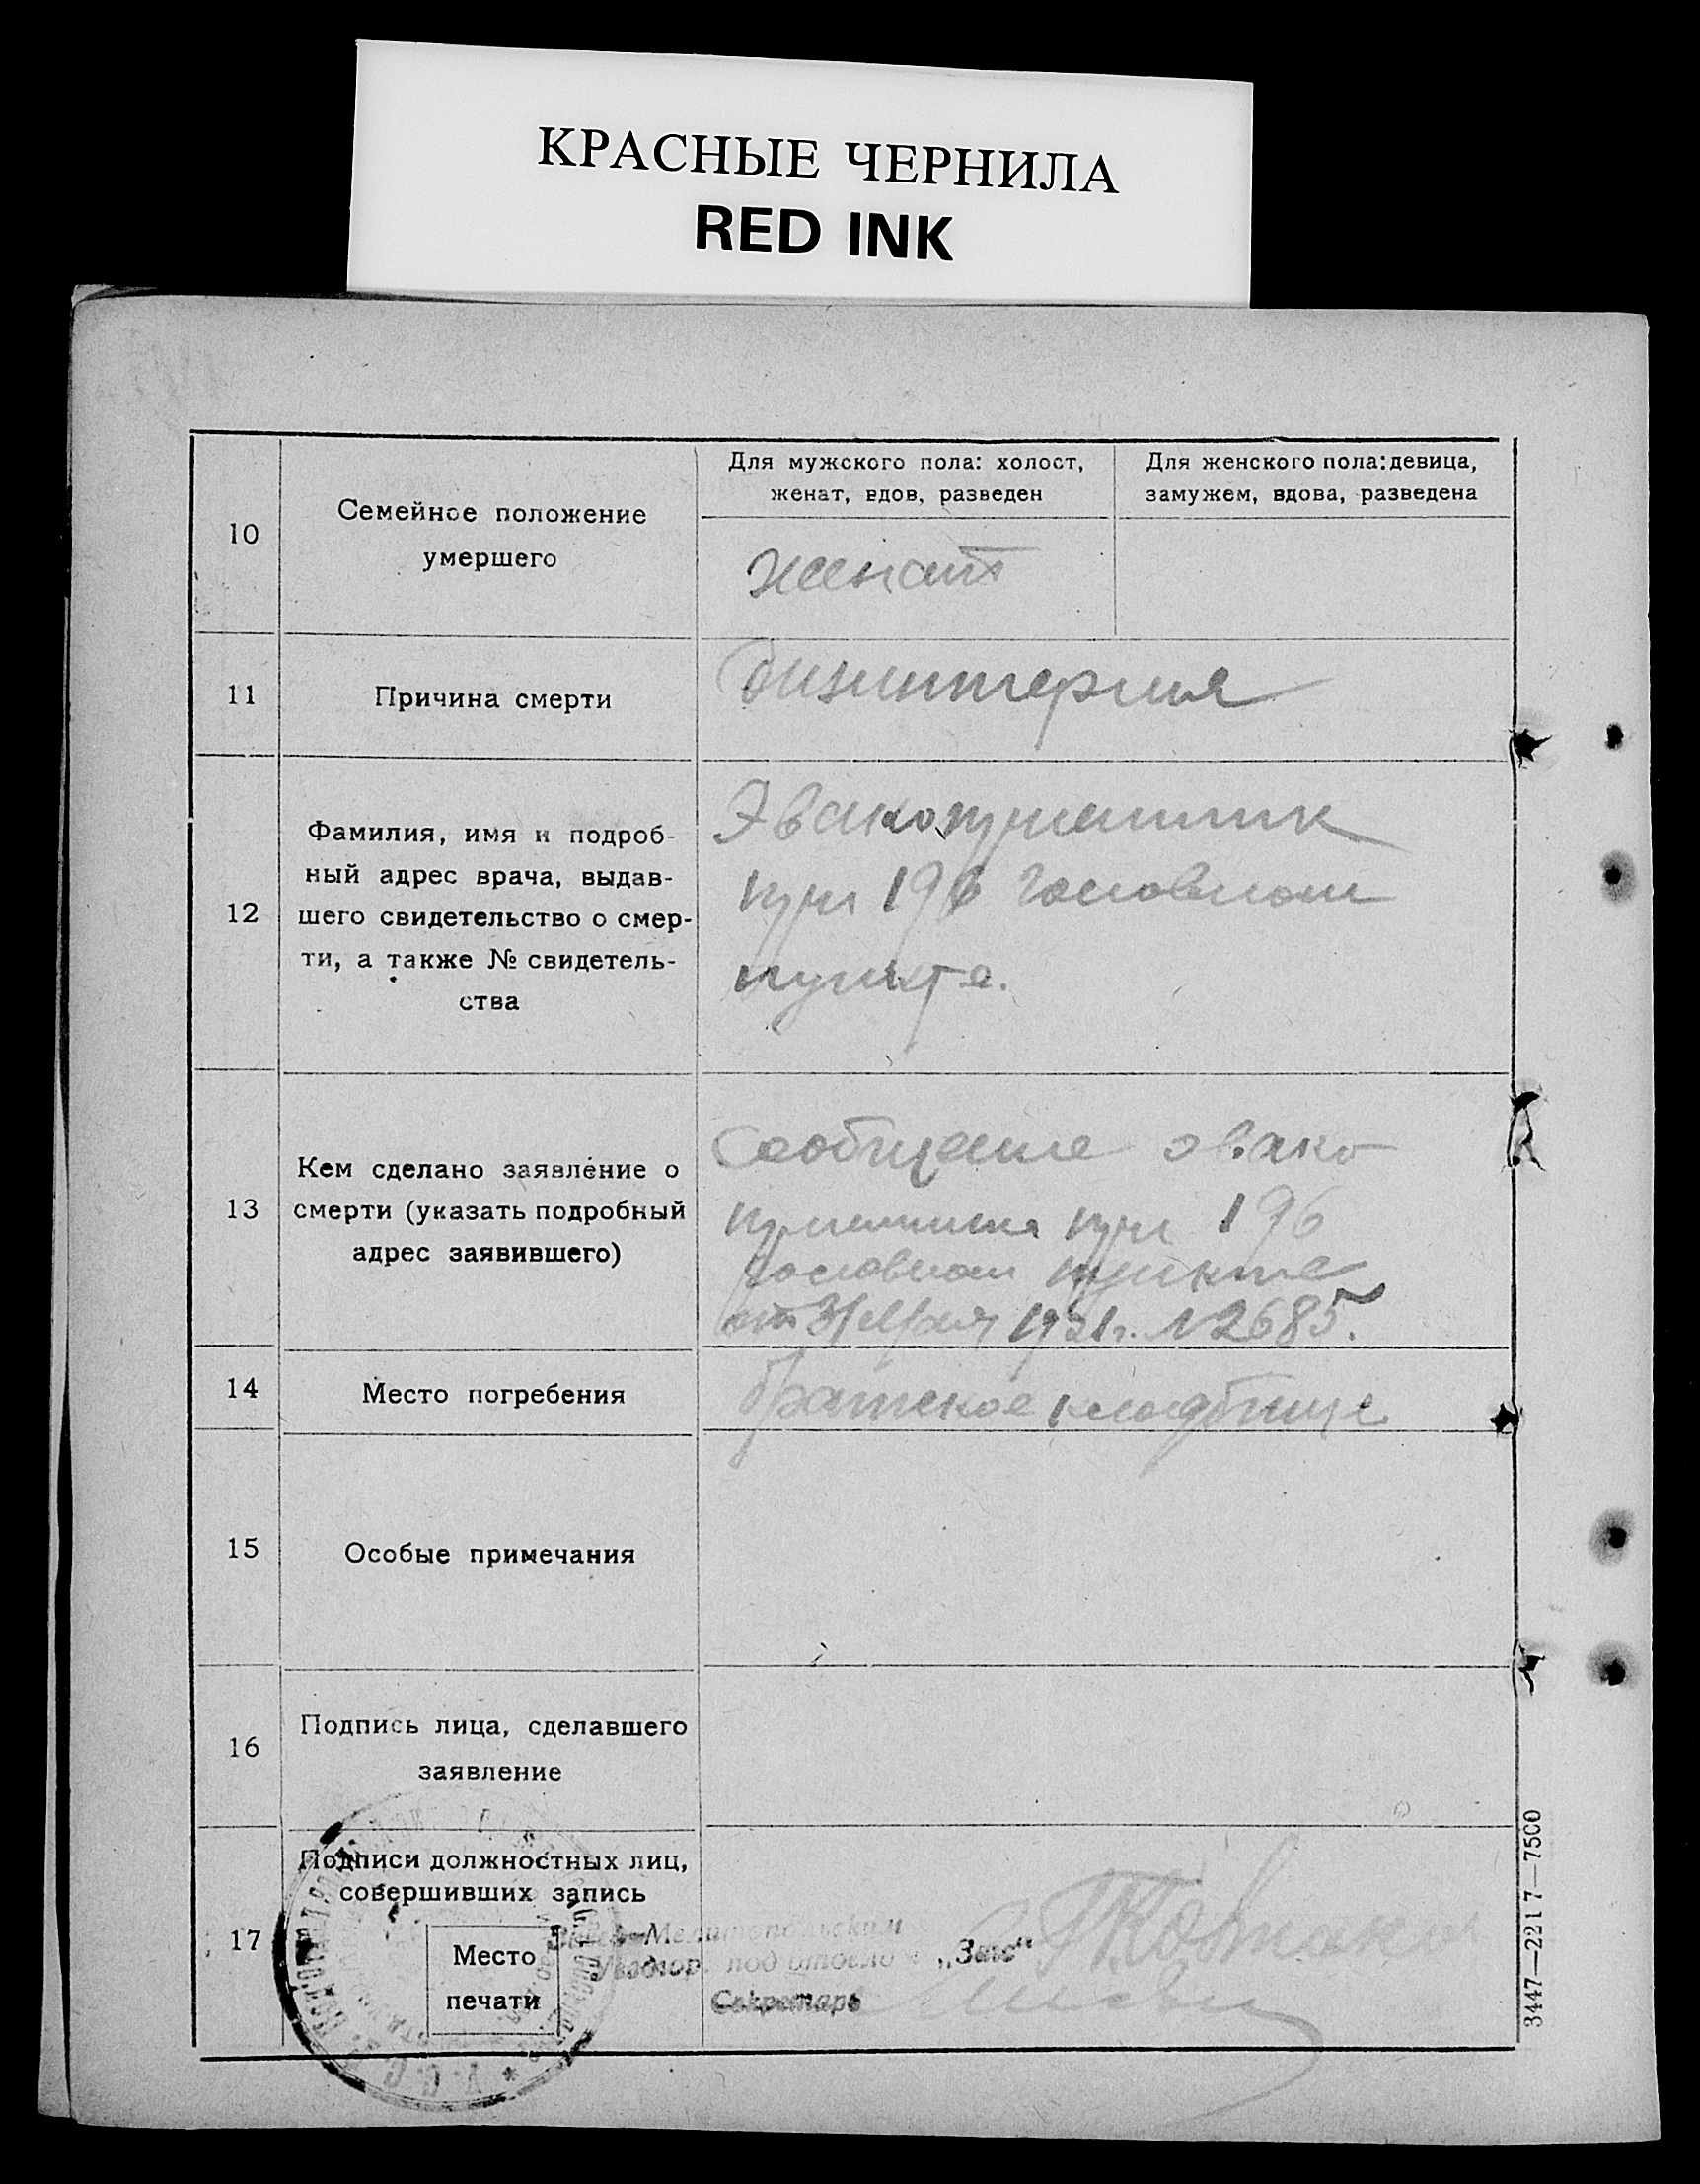 КРАСНЫЕ ЧЕРНИЛА
RED INK
10
Семейное положение
умершего
Для мужского пола: холост,
женат, вдов, разведен
Для женского пола: девица,
замужем, вдова, разведена
женат
11
Причина смерти
дизинтерия
12
Фамилия, имя и подроб-
ный адрес врача, выдав-
шего свидетельство о смер-
ти, а также № свидетель-
ства
Эвакоприемник
при 196 головном
пункте.
13
Кем сделано заявление о
смерти (указать подробный
адрес заявившего)
Сообщение эвако
приемника при 196
головном пункте
от 31 Мая 1921 г. № 2685.
14
Место погребения
братское кладбище
15
Особые примечания
16
Подпись лица, сделавшего
заявление
17
Подписи должностных лиц,
совершивших запись
Место
печати
Мелитопольским
под отдело „Загс“
Секретарь
У. С. С.
3447—2217—7500